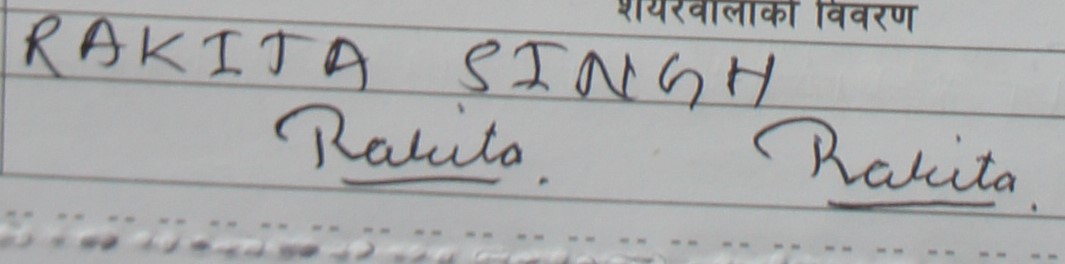 शेयरवालाको विवरण
RAKITA SINGH
Rakita. Rakita.